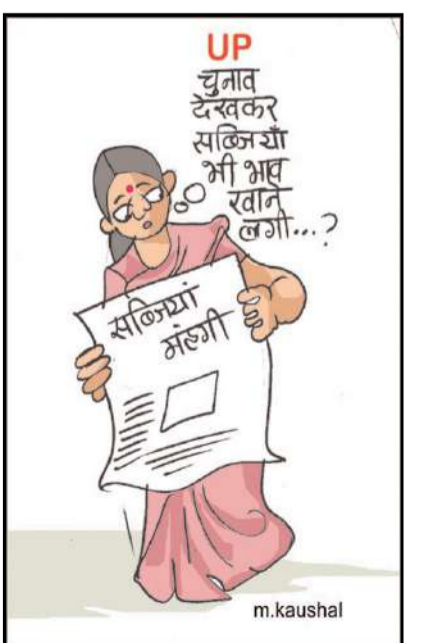 UP
चुनाव
देखकर
सब्जियाँ
भी भाव
खाने
लगी...?
सब्जियां
मंहगी
m.kaushal